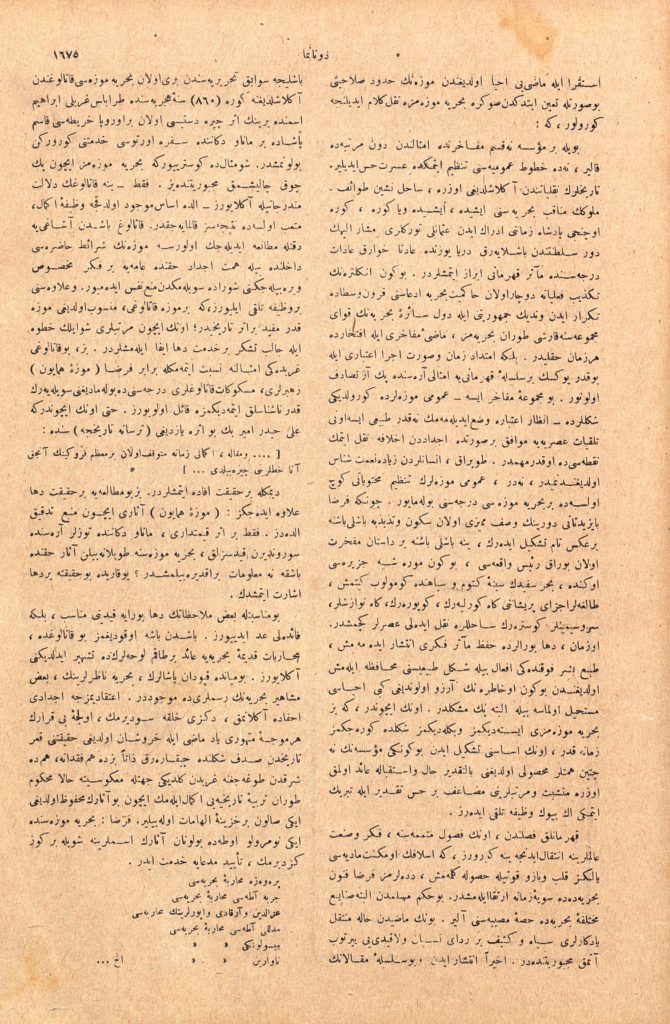 دونانما
١٦٧٥
استقرا ايله ماضى‌يى احيا اولديغندن موزه‌نك حدود صلاحيتى
بوصورتله تعيين ايتدكدن صوكره بحريه موزه‌مزه نقل كلام ايديلنجه
كورولور ، كه :
بويله بر مؤسسه نه‌قسم مفاخرنده امثالندن دون مرتبه‌ده
قالير ، نه‌ده خطوط عموميه‌سنى تنظيم ايتمكده عسرت حس ايديلير.
تاريخلرك نقلياتندن آكلاشلديغى اوزره ، ساحل نشين طوائف ـ
ملوكك مناقب بحريه‌سنى ايشيده ، ايشيده وياكوره ، كوره
اوچنجى پادشاه زمانى ادراك ايدن عثمانلى توركلرى مشار اليهك
دور سلطنتندن باشلايه‌رق دريا يوزنده عادتا خوارق عادات
درجه‌سنده مآثر قهرمانى ابراز ايتمشلردر . بوكون انكلتره‌نك
تكذيب فعلياته دوچار اولان حاكميت بحريه ادعاسنى قرون وسطاده
تكرار ايدن ونديك جمهوريتى ايله دول سائرهٔ بحريه‌نك قواى
مجموعه‌سنه قارشى طوران بحريه‌مز ، ماضئ مفاخرى ايله افتخارده
هرزمان حقليدر . بلكه امتداد زمان وصورت اجرا اعتبارى ايله
بوقدر يوكسك برسلسلهٔ قهرمانى‌يه امثالى آره‌سنده پك آز تصادف
اولونور . بو مجموعهٔ مفاخر ايسه ـ عمومى موزه‌لرده كورولديكى
شكللرده ـ انظار اعتباره وضع ايديله‌مه‌مك نه‌قدر طبيعى ايسه اونى
تلقيات عصريه‌يه موافق برصورتده اجداددن اخلافه نقل ايتمك
نقطه‌سى‌ده اوقدر مهمدر . طوبراق ، انسانلردن زياده نعمت شناس
اولديغندنميدر ، نه‌در ، عمومى موزه‌لرك تنظيم محتوياتى كوچ
اولسه‌ده بر بحريه موزه‌سى درجه‌سنى بوله‌مايور . چونكه فرضا
بايزيد ثانى دورينك وصف مميزى اولان سكون وتذبذبه باشلى باشنه
برعكس تام تشكيل ايده‌رك ، ينه باشلى باشنه برداستان مفخرت
اولان بوراق رئيس واقعه‌سى ، بوكون موره شبه جزيره‌سى
اوكنده ، بحر سفيدك سينهٔ كتوم و سياهنده كومولوب كيتمش ،
طالغه‌لر اجزاى پريشانى كاه كورليه‌رك ، كوپوره‌رك، كاه نوازشلر،
سر وسيميتلر كوستره‌رك ساحللره نقل ايده‌لى عصرلر كچمشدر.
اوزمان ، دها بورالرده حفظ مآثر فكرى انتشار ايده مه‌مش ،
طبيع بشر فوقنده‌كى افعال بيله شكل طبيعيسنى محافظه ايله‌مش
اولديغندن بوكون اوخاطره‌نك آرزو اولونديغى كبى احياسى
مستحيل اولماسه بيله البته پك مشكلدر . اونك ايچوندر ، كه بز
بحريه موزه‌مزى ايسته‌ديكمز وبكله‌ديكمز شكلده كوره‌جكمز
زمانه قدر ، اونك اساسنى تشكيل ايدن بوكونكى مؤسسه‌نك نه
چتين همتلر محصولى اولديغنى بالتقدير حال واستقباله عائد اولمق
اوزره متشبث ومرتبلرينى مضاعف بر حس تقدير ايله تبريك
ايتمكى اك بيوك وظيفه تلقى ايده‌رز .
قهرمانلق فصلندن ، اونك فصول متممه‌سنه ، فكر وصنعت
عالملرينه انتقال ايدنجه ينه كورورز ، كه اسلافك اومكنت ماديه‌سى
يالكز قلب وبازو قوتيله حصوله كلمه‌مش ، دده‌لرمز فرضا فنون
بحريه‌ده‌ده سويهٔ زمانه ارتقا ايله‌مشدر. بوحكم مسلمدن البته صنايع
مختلفهٔ بحريه‌ده حصهٔ مصيبه‌سنى آلير . بونك ماضيدن حاله منتقل
يادكارلرى سياه و كثيف بر رداى نسيان ولاقيدى‌يى ييرتوب
آتمق مجبوريتنده‌در . اخيراً انتشار ايدن وبوسلسلهٔ مقالاتك
باشليجه سوابق تحريريه‌سندن برى اولان بحريه موزه‌سى قاتالوغندن
آكلاشلديغنه كوره (٨٦٠) سنهٔ هجريه‌سنده طرابلس غربلى ابراهيم
اسمنده برينك اثر چيره دستيسى اولان براوروپا خريطه‌سى قاسم
پاشاده بر ماناو دكاننده سفره اورتوسى خدمتنى كوروركن
بولونمشدر. شومثال‌ده كوستريبوركه بحريه موزه‌مز ايچون پك
چوق چاليشمق مجبوريتنده‌يز . فقط ـ ينه قاتالوغك دلالت
مندرجاتيله آكلايورز ـ الده اساس موجود اولدقجه وظيفهٔ اكمال،
متعب اولسه‌ده نتيجه‌سز قالمايه‌جقدر. قاتالوغ باشدن آشاغى‌يه
دقتله مطالعه ايديله‌جك اولورسه موزه‌نك شرائط حاضره‌سى
داخلنده بيله همت اجداد حقنده عامه‌يه بر فكر مخصوص
ويره بيله‌جكنى شوراده سويله‌مكدن منع نفس ايده‌ميور. وعلاوه‌سنى
بر وظيفه تلقى ايليورز، كه برموزه قاتالوغى، منسوب اولديغى موزه
قدر مفيد براثر تاريخيدر؛ اونك ايچون مرتبلرى شوايلك خطوه
ايله جالب تشكر برخدمت دها ايفا ايله‌مشلردر . بز، بوقاتالوغى
غربده‌كى امثالنه نسبت ايتمه‌مكله برابر فرضا ( موزهٔ همايون )
رهبرلرى، مسكوكات قاتالوغلرى درجه‌سنى ده بوله‌ماديغنى سويله‌يه‌رك
قدر ناشناسلق ايتمه‌ديكمزه قائل اولويورز. حتى اونك ايچوندركه
على حيدر امير بك بو اثره يازديغى (ترسانه تاريخچه) سنده :
[ .... ومقاله ، اكمالى زمانه متوقف اولان برمعظم فروكينك آنجق
آنا خطلرينى چيزه‌بيلدى ... ]
ديمكله برحقيقت افاده ايتمشلردر. بز بومطالعه‌يه برحقيقت دها
علاوه ايده‌جكز : (موزهٔ همايون) آثارى ايچون منبع تدقيق
الده‌در . فقط بر اثر قيمتدارى ، ماناو دكاننده توزلر آره‌سنده
سوروندیرن قيدسزلق ، بحريه موزه‌سنه طوپلانه‌بيلن آثار حقنده
باشقه نه معلومات براقه‌بيلمشدر؟ يوقاريده بوحقيقته بردها
اشارت ايتمشدك .
بومناسبتله بعض ملاحظاتك دها بورايه قيدينى مناسب ، بلكه
فائده‌لى عد ايدييورز . باشدن باشه اوقوديغمز بو قاتالوغده ،
محاربات قديمهٔ بحريه‌يه عائد برطاقم لوحه‌لرك‌ده تشهير ايدلديكنى
آكلايورز . بومياننده قپودان پاشالرك ، بحريه ناظرلرينك ، بعض
مشاهير بحريه‌نك رسملرى‌ده موجوددر . اعتقاديمزجه اجدادى
احفاده آكلاتمق ، دكزى خلقه سوديرمك ، اولجه بى قرارك
هرموجهٔ متهورى ياد ماضى ايله خروشان اولديغى حقيقتنى قعر
تاريخدن صدف شكلنده چيقاره‌رق ذاتاً بزده هم فقدانه، هم‌ده
شرقدن طوغه‌جغنه غربدن كلديكى جهتله معكوسيته حالا محكوم
طوران تربيهٔ تاريخيه‌يى اكمال ايله‌مك ايچون بوآثارك محفوظ اولديغى
ايكى صالون برخزينهٔ الهامات اوله‌بيلير. فرضا : بحريه موزه‌سنده
ايكى نومرولو اوطه‌ده بولونان آثارك اسملرينه شويله بركوز
كزديرمك ، تأييد مدعايه خدمت ايدر .
پره‌وه‌زه محاربهٔ بحريه‌سى
جربه آطه‌سى محاربهٔ بحريه‌سى
عزالدين وآرقادى واپورلرينك محاربه‌سى
مدللى آطه‌سى محاربهٔ بحريه‌سى
ميسولونكى » »
ناوارين » » الخ ...